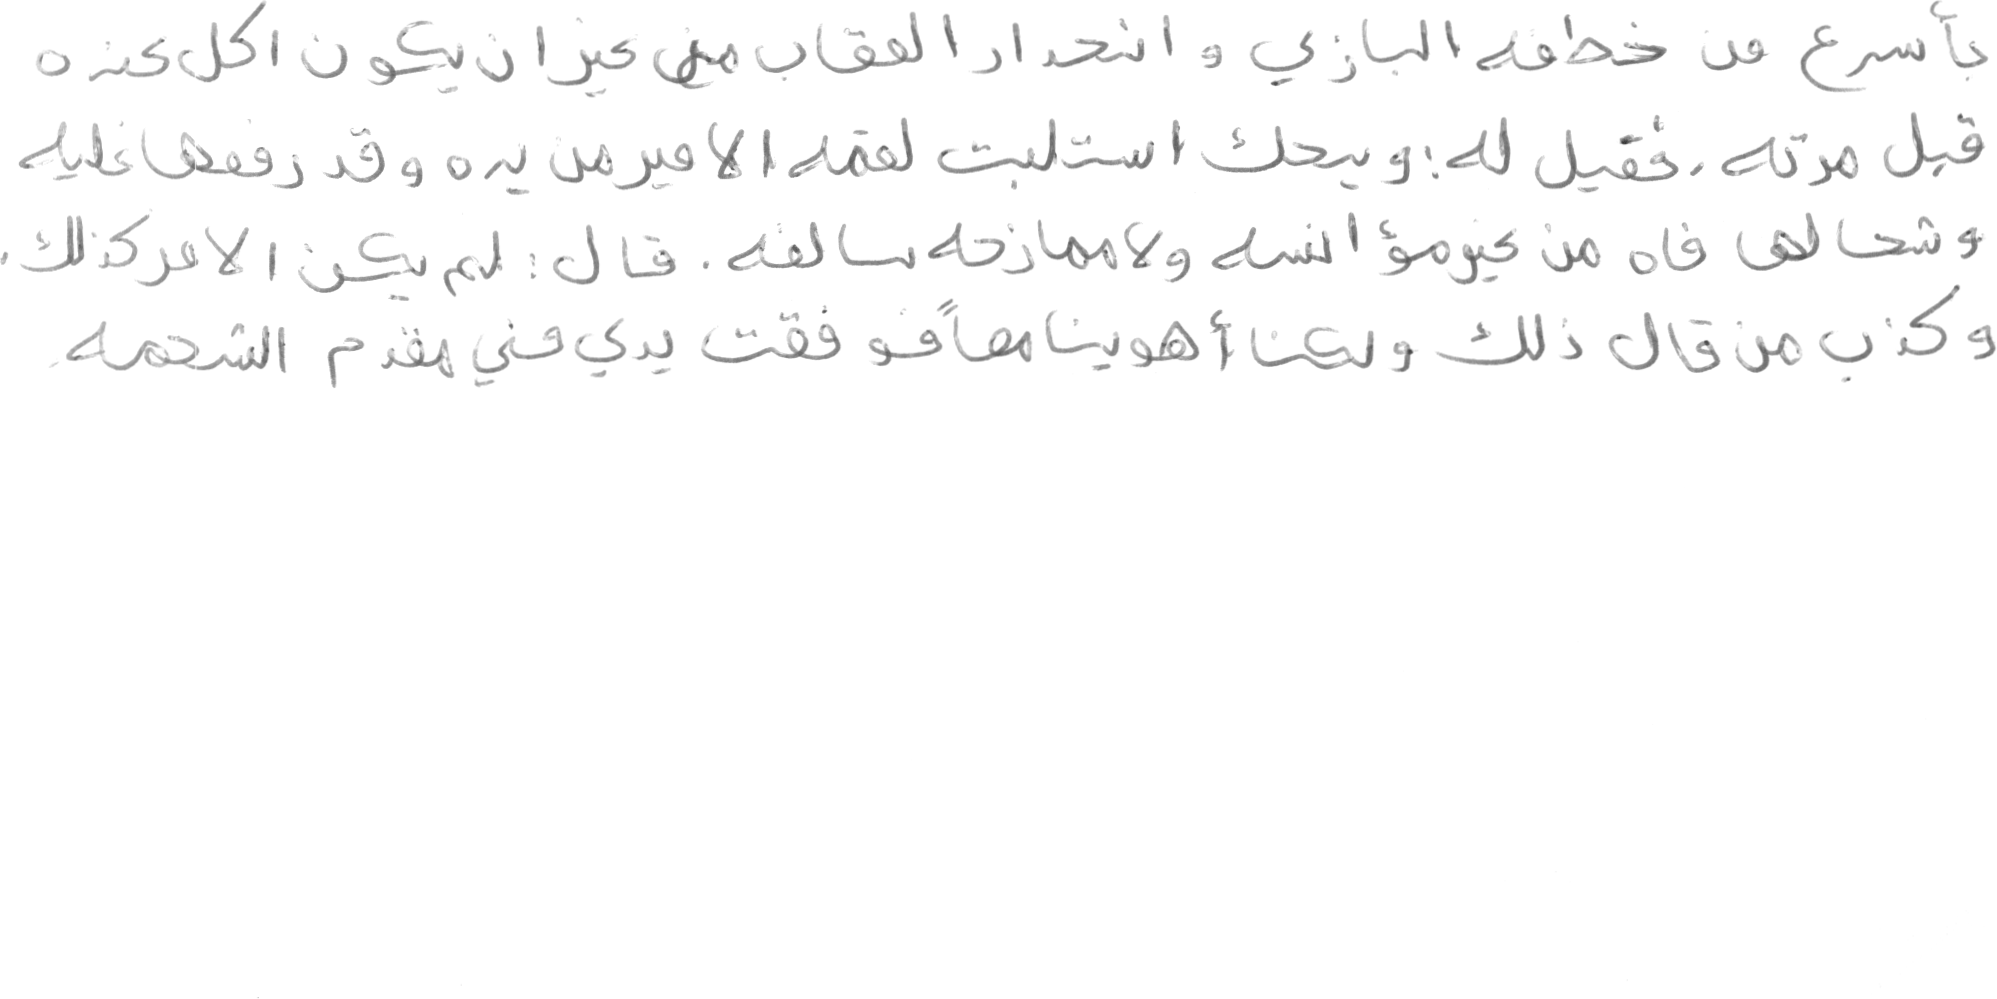 بأسرع من خطفه البازي و انحدار العقاب من غير ان يكون اكل عنده
قبل مرته. فقيل له: ويحك استلبت لقمه الامير من يده وقد رفعها عليه
وشحا لها فاه من غير مؤانسه ولا ممازحه سالفه. قال: لم يكن الامر كذلك.
وكذب من قال ذلك ولكنا أهوينا معاً فوفقت يدي في مقدم الشحمه